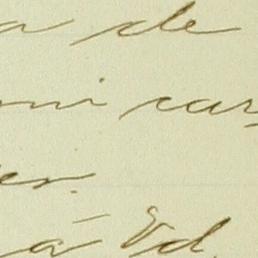 a de
mi car
er.
á Vd.